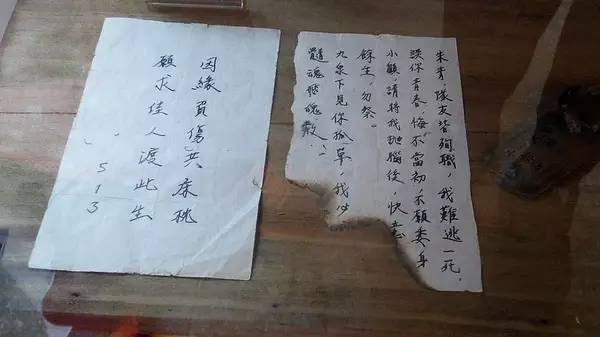 朱青 隊友皆殉職，我難逃一死.
誤你青春 悔不當初，若願委身
小顧，請將我拋腦後 快意
餘生，勿祭。
九泉下見你孤單，我必
髓魂飛魄散
因緣負傷共床桃
願求佳人渡此生
513